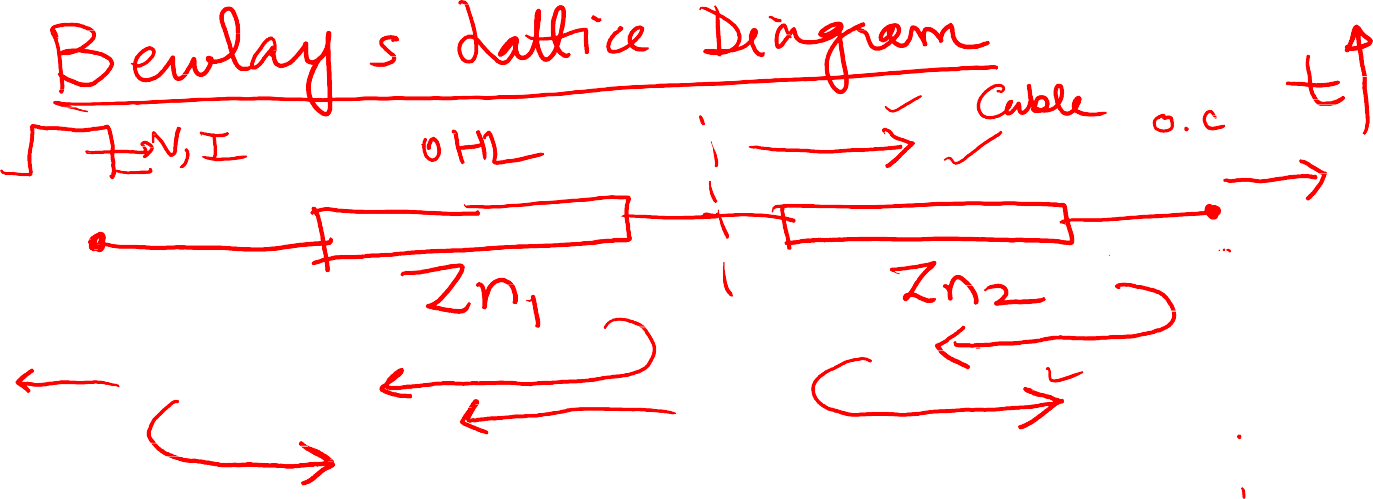 Bewlay s Lattice Diagram
t
V, I OHL Cable O.C
Zn1 Zn2